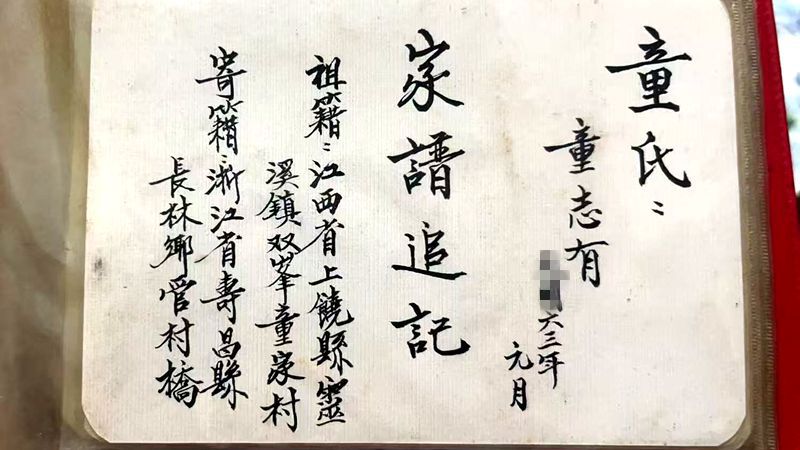 童氏:
童志有
六三年
元月
家譜追記
祖籍:江西省上饒縣靈
溪鎮双峯童家村
寄籍:浙江省壽昌縣
長林鄉管村橋